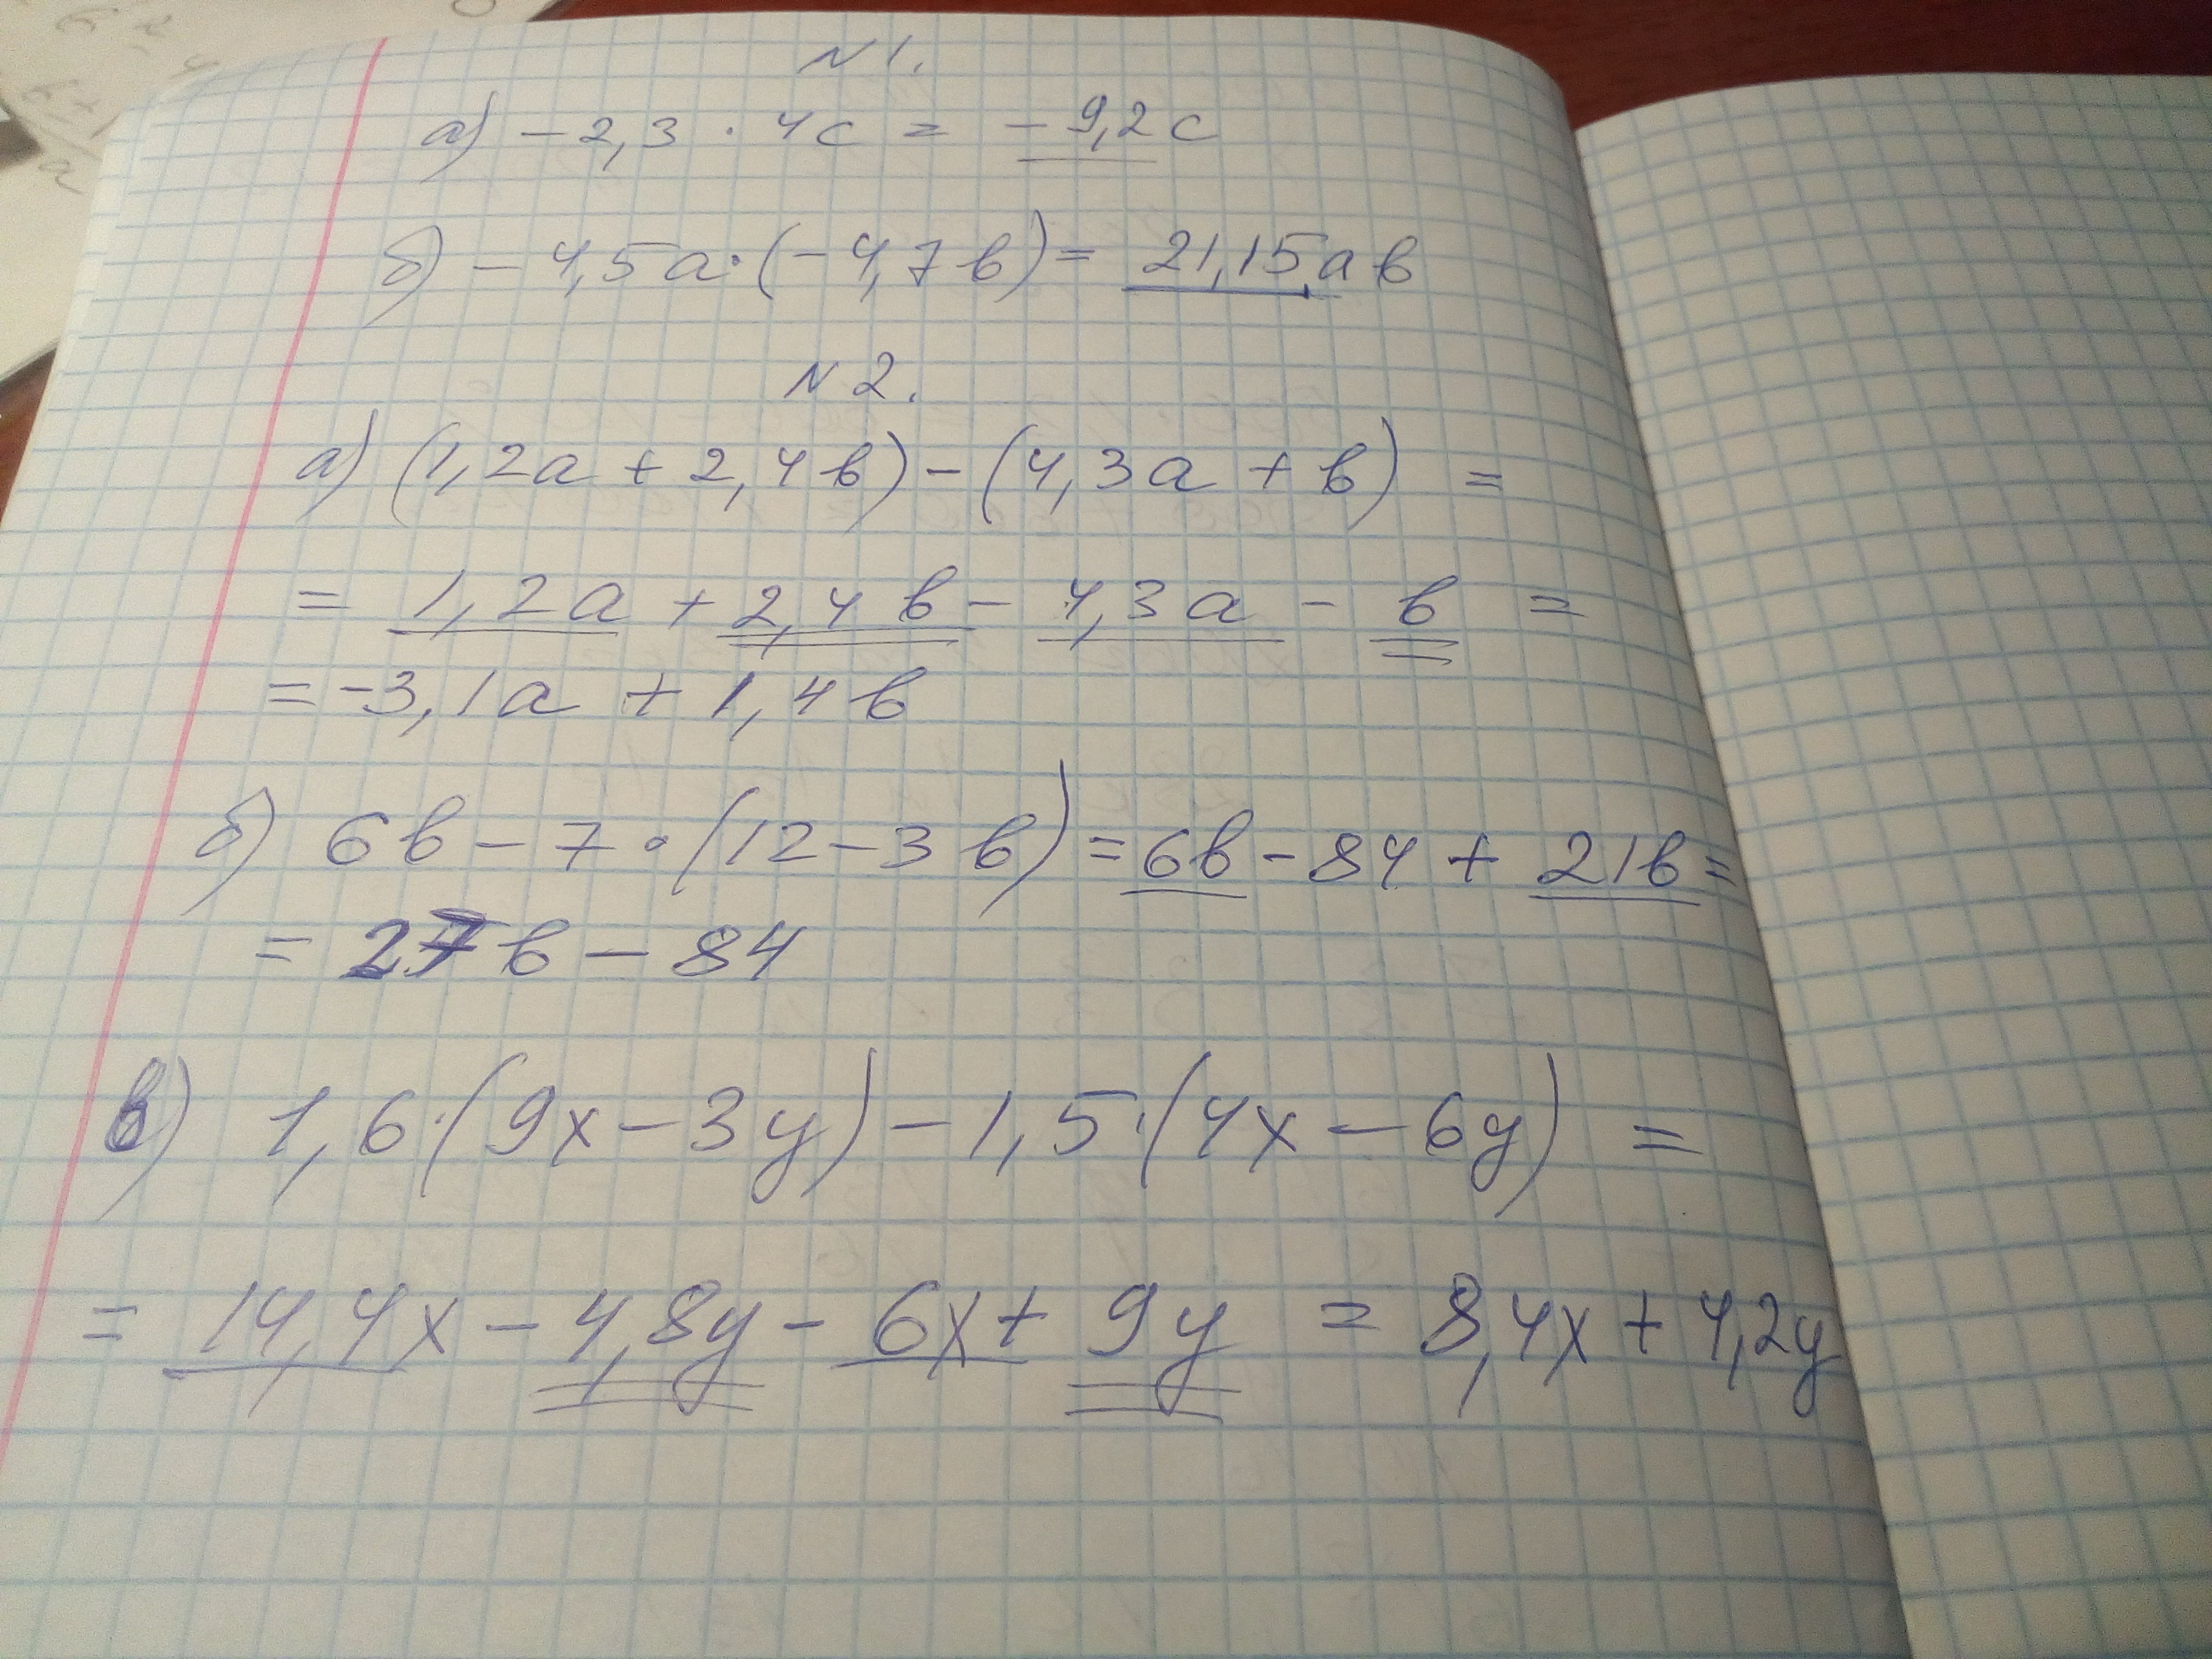 N 1.
а) - 2,3 · 4c = - 9,2c
б) - 4,5a · (- 4,7в) = 21,15aв
N 2.
а) (1,2a + 2,4в) - (4,3a + в) =
= 1,2a + 2,4в - 4,3a - в =
= -3,1a + 1,4в
б) 6в - 7 · (12 - 3в) = 6в - 84 + 21в =
= 27в - 84
в) 1,6·(9x - 3y) - 1,5·(4x - 6y) =
= 14,4x - 4,8y - 6x + 9y = 8,4x + 4,2y